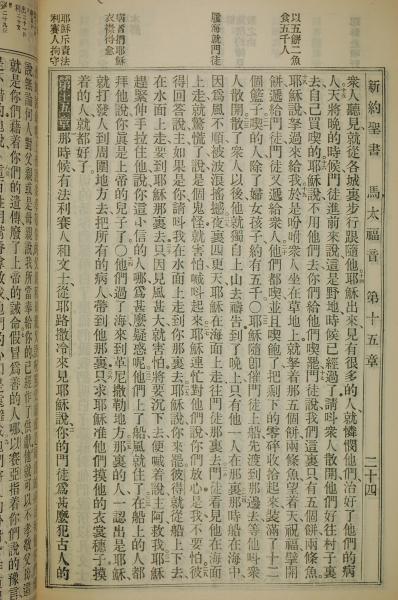 新約聖書　馬太福音　第十五章　二十四
以五餅二魚
食五千人
履海就門徒
病者捫耶穌
衣裳得愈
耶穌斥責法
利賽人拘守
衆人聽見就從各城裏步行跟隨他耶穌出來見有很多的人就憐憫他們治好了他們的病
人天將晚的時候門徒進前來說這是野地時候已經過了請呌衆人散開他們好往村子裏
去自己買喫的耶穌說不用他們去你們給他們喫罷門徒說我們這裏只有五個餅兩條魚
耶穌說拏過來給我於是吩咐衆人坐在草地上就拏着那五個餅兩條魚望着天祝福擘開
餅遞給門徒門徒又遞給衆人他們都喫並且喫飽了把剩下的零碎收拾起來裝滿了十二
個籃子喫的人除了婦女孩子約有五千〇耶穌隨卽催門徒上船先渡到那邊去等他呌衆
人散開散了衆人以後他就獨自上山去禱告到了晚上只有他一人在那裏那時船在海中
因爲風不順被波浪搖撼夜裏四更天耶穌在海面上走往門徒那裏去門徒看見他在海面
上走就驚慌了說是個鬼怪就害怕喊呌起來耶穌連忙對他們說你們放心是我不要怕彼
得回答說主如果是你請呌我在水面上走到你那裏去耶穌說你來罷彼得就從船上下去
在水面上走要到耶穌那裏去只因見風甚大就害怕將要沉下去便喊着說主阿救我耶穌
趕緊伸手拉住他說你這小信的人哪爲甚麼疑惑呢他們上了船風就住了在船上的人都
拜他說你眞是上帝的兒子了〇他們過了海來到革尼撒勒地方那裏的人一認出是耶穌
就打發人到周圍地方去把所有的病人帶到他那裏只求耶穌准他們摸他的衣裳穗子摸
着的人就都好了
第十五章　那時候有法利賽人和文士從耶路撒冷來見耶穌說你的門徒爲甚麼犯古人的
說無論何人對父親或是母親說我所當奉給你的已經作了供獻他就可以不孝敬父母這
就是你們藉着你們的遺傳廢了上帝的誡命假冒爲善的人哪以賽亞指着你們說的豫言